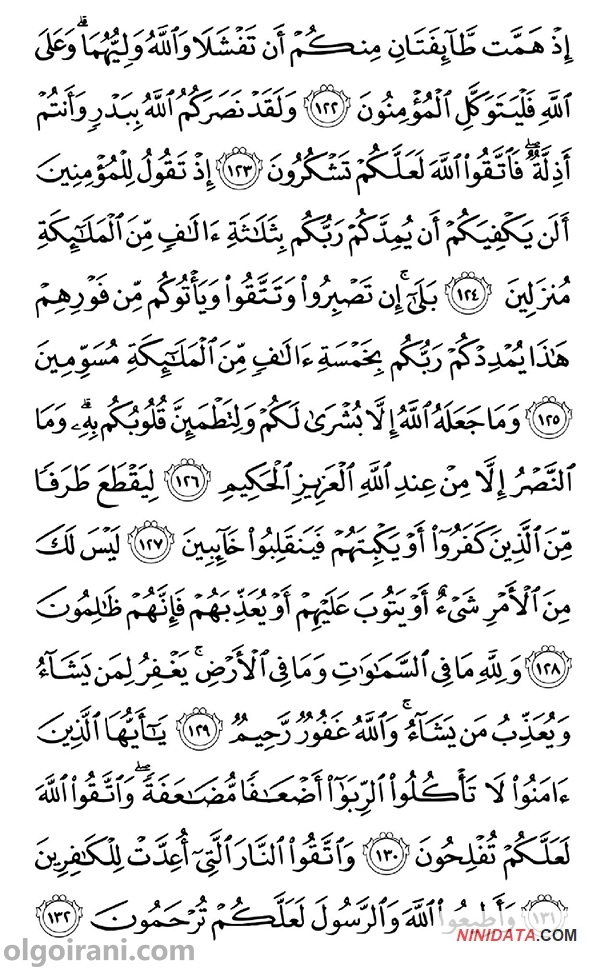 إِذْ هَمَّت طَّآئِفَتَانِ مِنكُمْ أَن تَفْشَلَا وَاللَّهُ وَلِيُّهُمَا ۗ وَعَلَى
اللَّهِ فَلْيَتَوَكَّلِ الْمُؤْمِنُونَ ١٢٢ وَلَقَدْ نَصَرَكُمُ اللَّهُ بِبَدْرٍ وَأَنتُمْ
أَذِلَّةٌ ۖ فَاتَّقُوا اللَّهَ لَعَلَّكُمْ تَشْكُرُونَ ١٢٣ إِذْ تَقُولُ لِلْمُؤْمِنِينَ
أَلَن يَكْفِيَكُمْ أَن يُمِدَّكُمْ رَبُّكُم بِثَلَاثَةِ ءَالَافٍ مِّنَ الْمَلَائِكَةِ
مُنزَلِينَ ١٢٤ بَلَىٰ ۚ إِن تَصْبِرُوا وَتَتَّقُوا وَيَأْتُوكُم مِّن فَوْرِهِمْ
هَٰذَا يُمْدِدْكُمْ رَبُّكُم بِخَمْسَةِ ءَالَافٍ مِّنَ الْمَلَائِكَةِ مُسَوِّمِينَ
١٢٥ وَمَا جَعَلَهُ اللَّهُ إِلَّا بُشْرَىٰ لَكُمْ وَلِتَطْمَئِنَّ قُلُوبُكُم بِهِ ۗ وَمَا
النَّصْرُ إِلَّا مِنْ عِندِ اللَّهِ الْعَزِيزِ الْحَكِيمِ ١٢٦ لِيَقْطَعَ طَرَفًا
مِّنَ الَّذِينَ كَفَرُوا أَوْ يَكْبِتَهُمْ فَيَنقَلِبُوا خَآئِبِينَ ١٢٧ لَيْسَ لَكَ
مِنَ الْأَمْرِ شَىْءٌ أَوْ يَتُوبَ عَلَيْهِمْ أَوْ يُعَذِّبَهُمْ فَإِنَّهُمْ ظَالِمُونَ
١٢٨ وَلِلَّهِ مَا فِى السَّمَاوَاتِ وَمَا فِى الْأَرْضِ ۚ يَغْفِرُ لِمَن يَشَآءُ
وَيُعَذِّبُ مَن يَشَآءُ ۚ وَاللَّهُ غَفُورٌ رَّحِيمٌ ١٢٩ يَٰٓأَيُّهَا الَّذِينَ
ءَامَنُوا لَا تَأْكُلُوا الرِّبَوٰٓا أَضْعَافًا مُّضَاعَفَةً ۖ وَاتَّقُوا اللَّهَ
لَعَلَّكُمْ تُفْلِحُونَ ١٣٠ وَاتَّقُوا النَّارَ الَّتِىٓ أُعِدَّتْ لِلْكَافِرِينَ
١٣١ وَأَطِيعُوا اللَّهَ وَالرَّسُولَ لَعَلَّكُمْ تُرْحَمُونَ ١٣٢
NINIDATA.COM
olgoirani.com